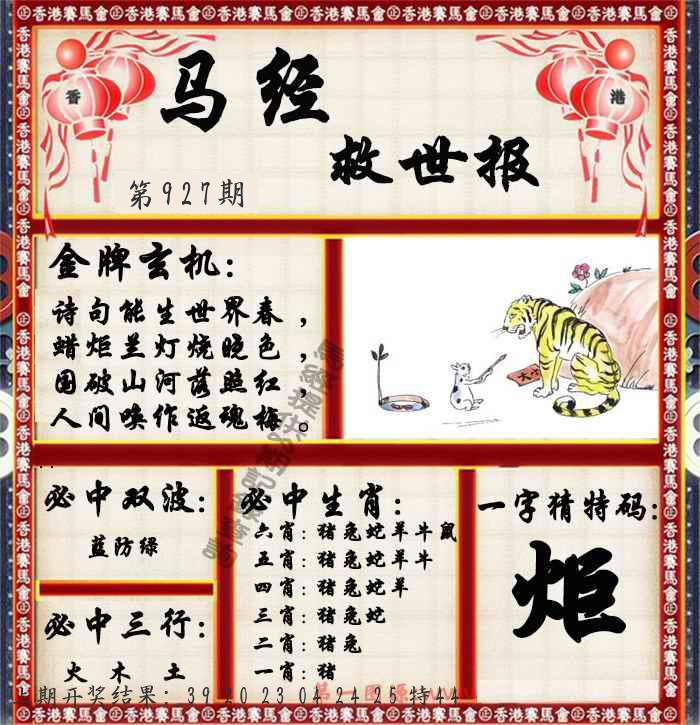 香港賽馬會
香
港
马经
救世报
第927期
金牌玄机：
诗句能生世界春，
蜡炬兰灯烧晚色，
国破山河落照红，
人间唤作返魂梅。
必中双波：
蓝防绿
必中三行：
火木土
必中生肖：
六肖：猪兔蛇羊牛鼠
五肖：猪兔蛇羊牛
四肖：猪兔蛇羊
三肖：猪兔蛇
二肖：猪兔
一肖：猪
一字猜特码：
炬
期开奖结果：39 20 23 04 24 25 特44
第一图源